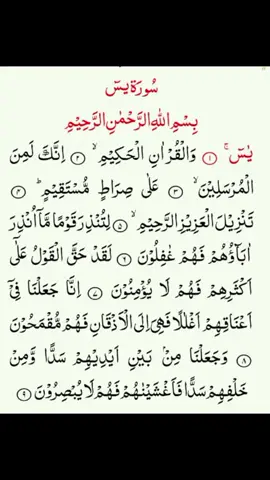 سُورَة يسٓ
بِسْمِ اللهِ الرَّحْمٰنِ الرَّحِيْمِ
يٰسٓ ۚ ۝١ وَالْقُرْاٰنِ الْحَكِيْمِ ۙ ۝٢ اِنَّكَ لَمِنَ
الْمُرْسَلِيْنَ ۙ ۝٣ عَلٰى صِرَاطٍ مُّسْتَقِيْمٍ ؕ ۝٤
تَنْزِيْلَ الْعَزِيْزِ الرَّحِيْمِ ۙ ۝٥ لِتُنْذِرَ قَوْمًا مَّاۤ اُنْذِرَ
اٰبَآؤُهُمْ فَهُمْ غٰفِلُوْنَ ۝٦ لَقَدْ حَقَّ الْقَوْلُ عَلٰٓى
اَكْثَرِهِمْ فَهُمْ لَا يُؤْمِنُوْنَ ۝٧ اِنَّا جَعَلْنَا فِىْۤ
اَعْنَاقِهِمْ اَغْلٰلًا فَهِىَ اِلَى الْاَذْقَانِ فَهُمْ مُّقْمَحُوْنَ
۝٨ وَجَعَلْنَا مِنْۢ بَيْنِ اَيْدِيْهِمْ سَدًّا وَّمِنْ
خَلْفِهِمْ سَدًّا فَاَغْشَيْنٰهُمْ فَهُمْ لَا يُبْصِرُوْنَ ۝٩